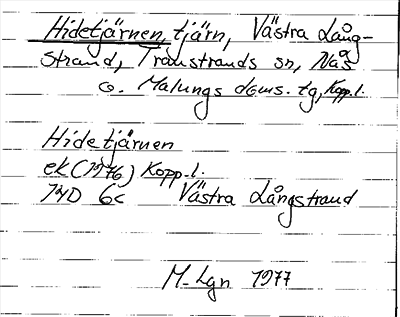 Hidetjärnen, tjärn, Västra Lång-
strand, Transtrands sn, Nås
o. Malungs doms. tg, Kopp.l.
Hidetjärnen
ek (1976) Kopp.l.
14D 6c Västra Långstrand
M-Lgn 1977